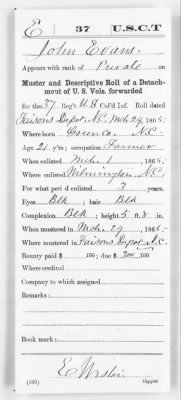 E 37 U.S.C.T
John Evans.
Appears with rank of Private on
Muster and Descriptive Roll of a Detach-
ment of U. S. Vols. forwarded
for the 37 Reg't U.S. Col'd Inf. Roll dated
Faisons Depot, N.C. Mch 29, 1865.
Where born Green co. N.C.
Age 21 y'rs; occupation Farmer
When enlisted Mch. 1, 1865.
Where enlisted Wilmington N.C.
For what period enlisted 3 years.
Eyes Blk; hair Blk
Complexion Blk; height 5 ft. 8 in.
When mustered in Mch. 29, 1865.
Where mustered in Faisons Depot, N.C.
Bounty paid $ 100; due $ 300 100
Where credited
Company to which assigned
Remarks:
Book mark:
(339) Copyist